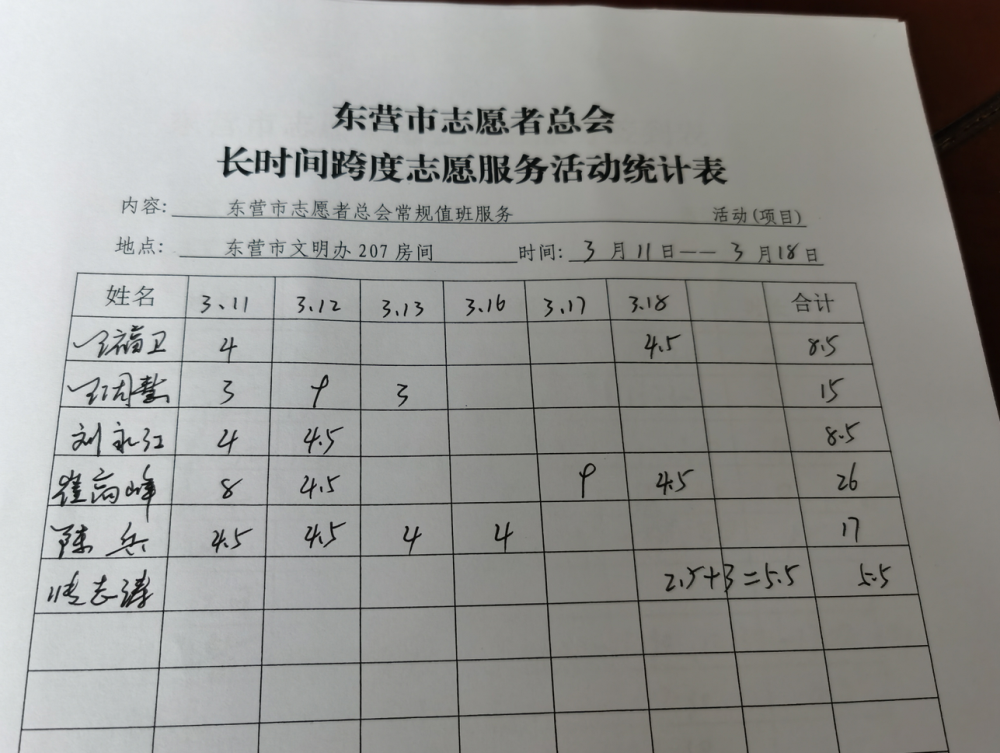 东营市志愿者总会
长时间跨度志愿服务活动统计表
内容: 东营市志愿者总会常规值班服务 活动(项目)
地点: 东营市文明办 207 房间 时间: 3 月 11 日 —— 3 月 18 日
姓名 3.11 3.12 3.13 3.16 3.17 3.18 合计
王福卫 4 4.5 8.5
3 9 3 15
刘永江 4 4.5 8.5
崔高峰 8 4.5 9 4.5 26
陈兵 4.5 4.5 4 4 17
志涛 2.5+3=5.5 5.5